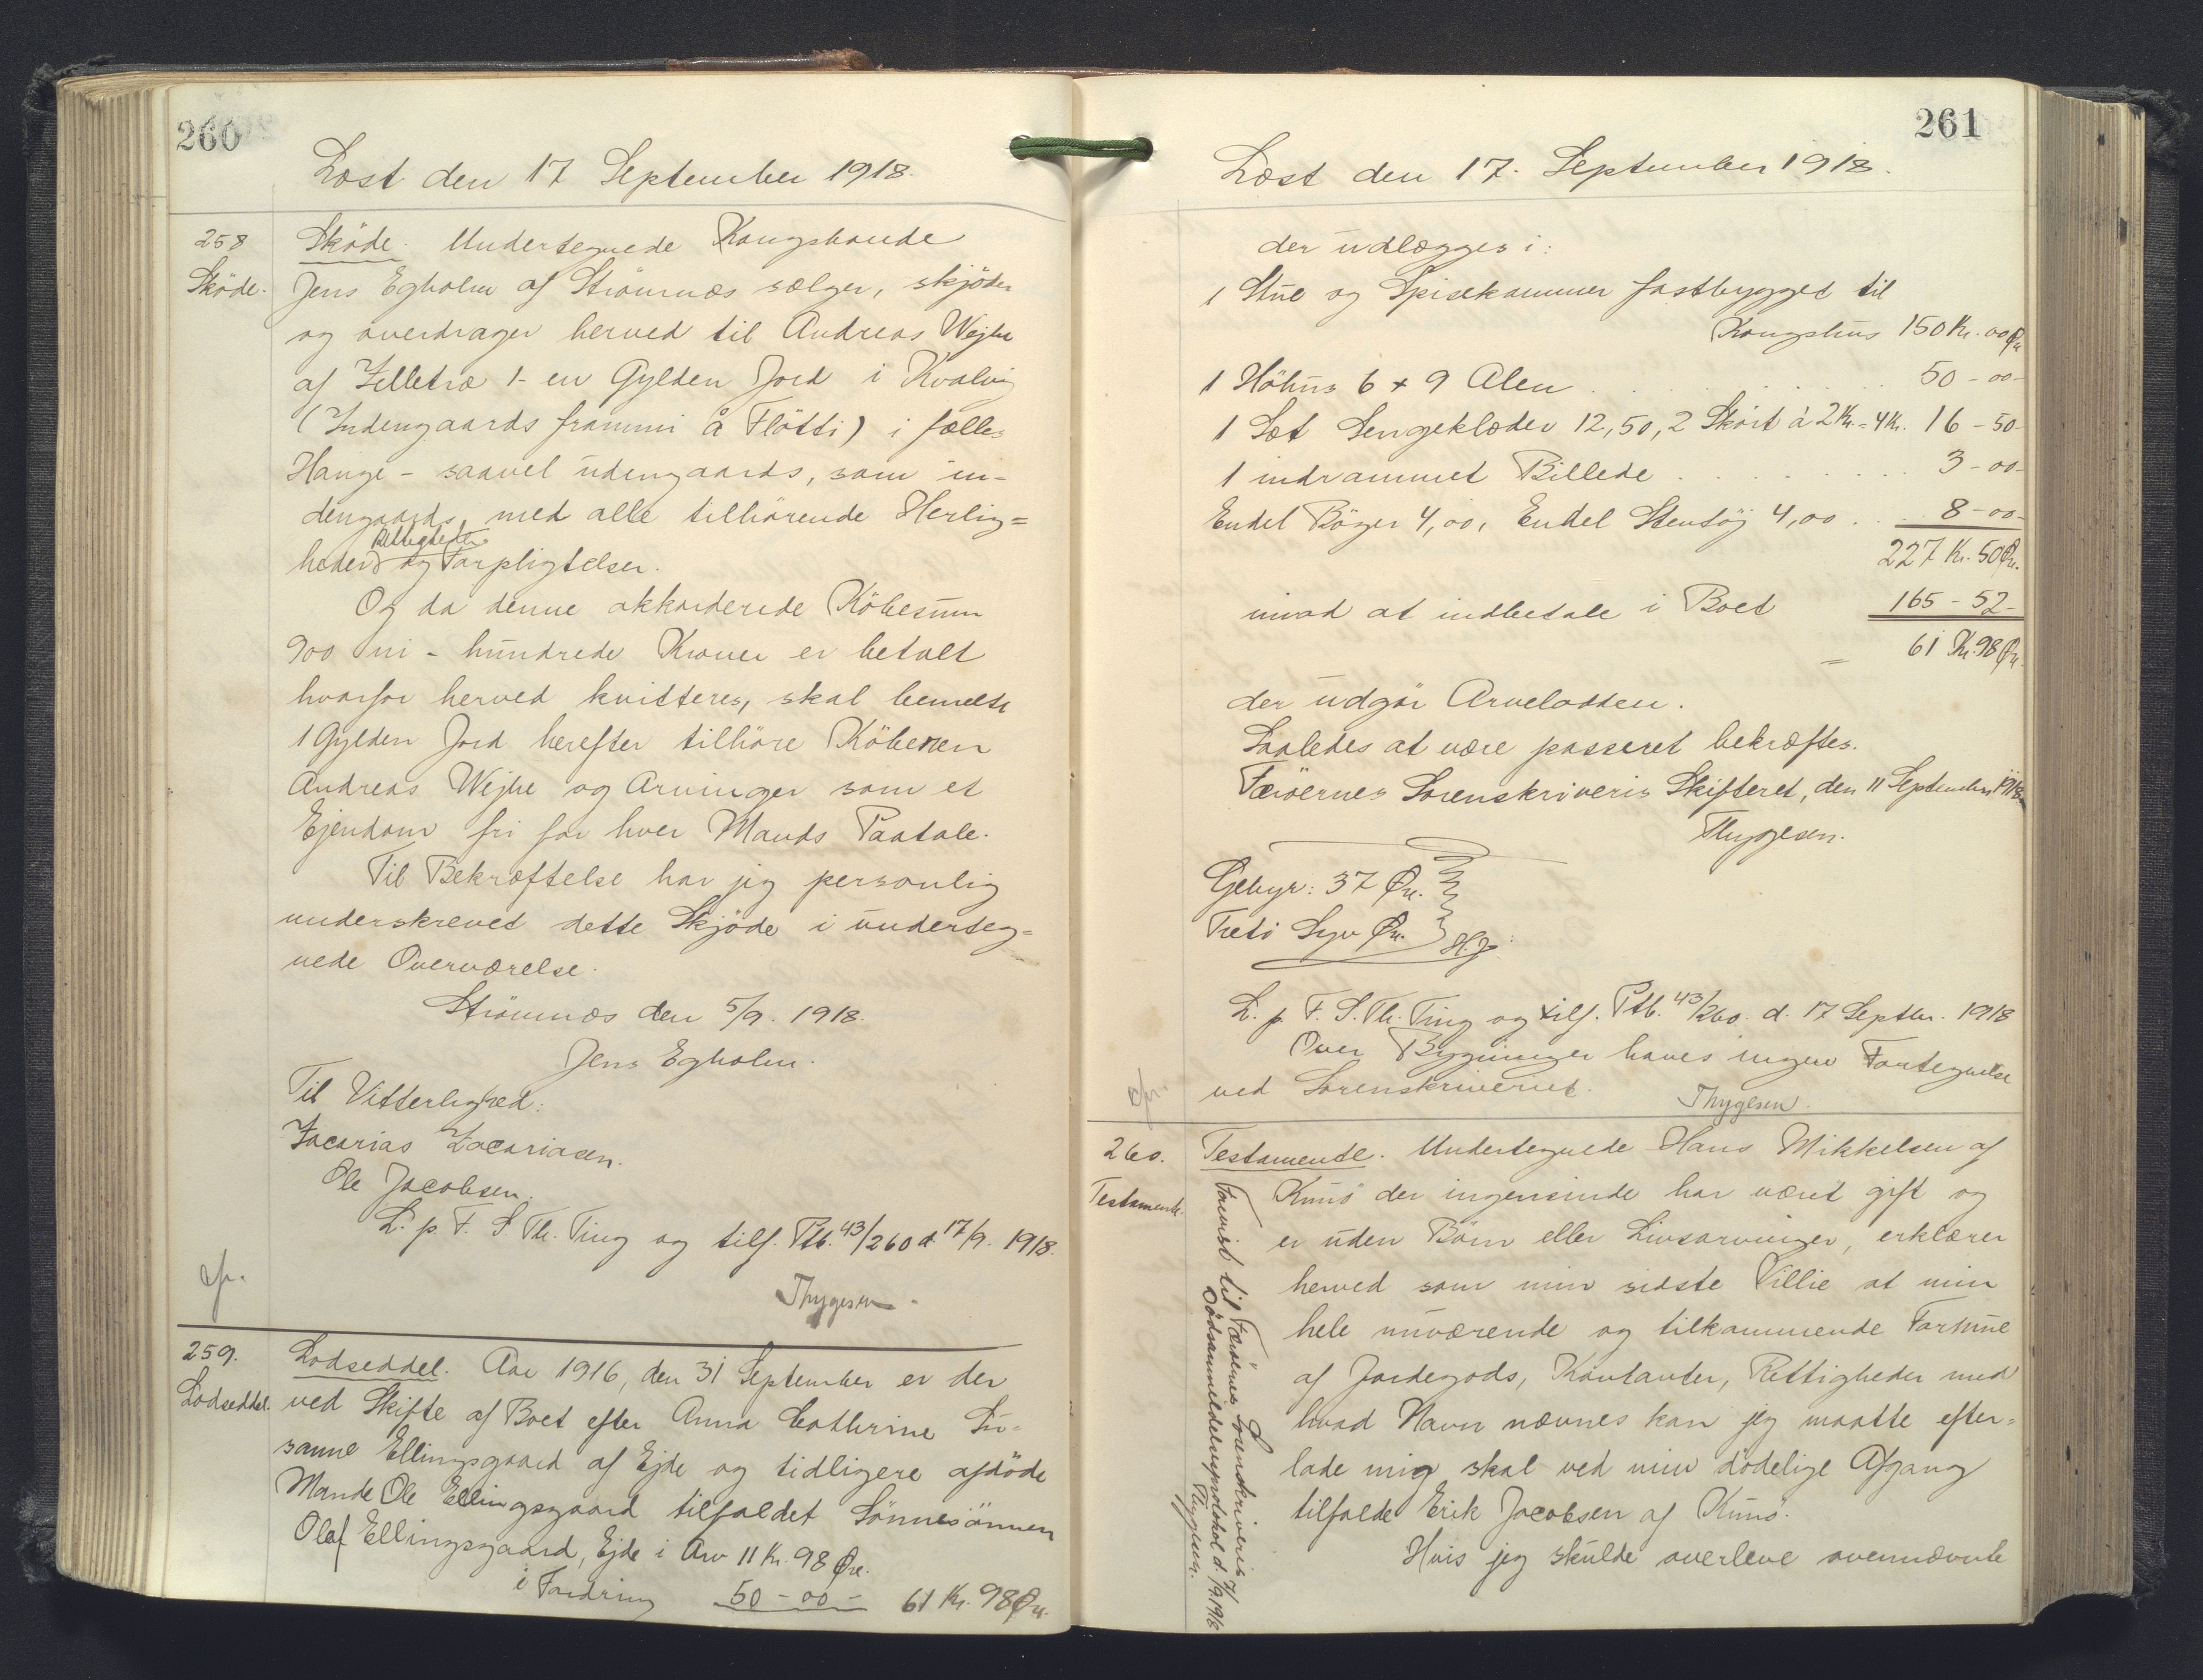 260
Læst den 17 September 1918.
258
Sköde.
Sköde. Undertegnede Kongsbonde
Jens Egholm af Strömnæs sælger, skjöder
og overdrager herved til Andreas Wejhe
af Zelletræ 1- en Gylden Jord i Kvalvig
(Indengaards frammi å Fløtti) i fælles
Hauge - saavel udengaards, som in-
dengaards, med alle tilhörende Herlig=
Rettigheder
heder og Forpligtelser.
Og da denne akkorderede Köbesum
900 ni - hundrede Kroner er betalt
hvorfor herved kvitteres, skal bemeldte
1 Gylden Jord herefter tilhöre Köberen
Andreas Wejhe og Arvinger som et
Ejendom fri for hver Mands Paatale.
Til Bekræftelse har jeg personlig
underskrevet dette Skjöde i underteg=
nede Overværelse.
Strömnæs den 5/9. 1918.
Jens Egholm.
Til Vitterlighed:
Zacarias Zacariasen.
Ole Jacobsen.
L. p. F. S. Th. Ting og tilf. Ptb. 43/260 d. 17/9. 1918.
Thygesen.
cfr.
259.
Lodseddel.
Lodseddel. Aar 1916, den 31 September er der
ved Skifte af Boet efter Anna Cathrine Su-
sanne Ellingsgaard af Ejde og tidligere afdöde
Mande Ole Ellingsgaard tilfaldet Sönnesönnen
Olaf Ellingsgaard, Ejde i Arv 11 Kr. 98 Øre.
i Fordring 50 - 00 - 61 Kr. 98 Ør.
261
Læst den 17. September 1918.
der udlægges i:
1 Stue og Spisekammer fastbygget til
Kongshus 150 Kr. 00 Ør
1 Höhus 6 x 9 Alen . . . . . . 50 - 00 -
1 Sæt Sengeklæder 12,50, 2 Skört à 2 Kr. = 4 Kr. 16 - 50 -
1 indrammet Billede . . . . . . 3 - 00 -
Endel Böger 4,00, Endel Stentöj 4,00 . . . 8 - 00 -
227 Kr. 50 Ør.
imod at indbetale i Boet 165 - 52 -
61 Kr. 98 Ør.
der udgör Arvelodden.
Saaledes at være passeret bekræftes.
Færöernes Sorenskriveris Skifteret, den 11 September 1918
Thygesen.
Gebyr: 37 Ør.
Treti Syv Ør. H.J.
L. p. F. S. Th. Ting og tilf. Ptb. 43/260. d. 17 Septbr. 1918
Over Bygninger haves ingen Fortegnelse
ved Sorenskriveriet.
Thygesen.
cfr.
260.
Testamente.
Testamente. Undertegnede Hans Mikkelsen af
Kunö der ingensinde har været gift og
er uden Börn eller Livsarvinger, erklærer
herved som min sidste Villie at min
hele nuværende og tilkommende Formue
af Jordegods, Kontanter, Rettigheder med
hvad Navn nævnes kan jeg maatte efter=
lade mig skal ved min dödelige Afgang
tilfalde Erik Jacobsen af Kunö.
Hvis jeg skulde overleve ovennævnte
til Færöernes Sorenskriveris
Dödsanmeldelsesprotokol d.
Thygesen.